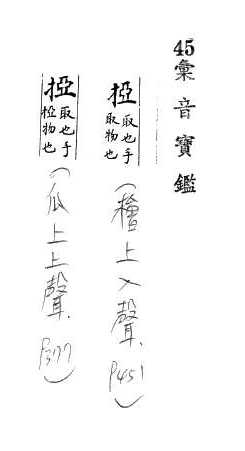 45彙音寶鑑
掗 取也手取物也
(檀上入聲. P451)
掗 取也手检物也
(瓜上上聲. P377)